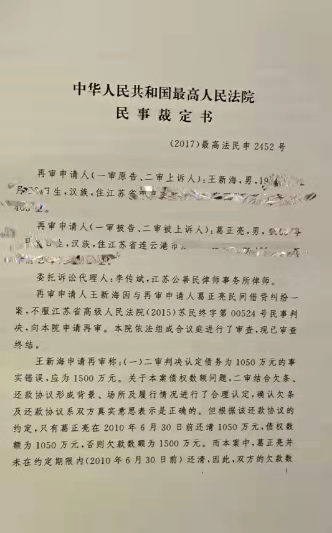 中华人民共和国最高人民法院
民事裁定书
(2017)最高法民申 2452 号
再审申请人(一审原告、二审上诉人):王新海,男,19
日生,汉族,住江苏省
再审申请人(一审被告、二审被上诉人):葛正亮,男,
日生,汉族,住江苏省连云港市
委托诉讼代理人:李传斌,江苏公善民律师事务所律师。
再审申请人王新海因与再审申请人葛正亮民间借贷纠纷一
案,不服江苏省高级人民法院(2015)苏民终字第 00524 号民事判
决,向本院申请再审。本院依法组成合议庭进行了审查,现已审查
终结。
王新海申请再审称:(一)二审判决认定债务为 1050 万元的事
实错误,应为 1500 万元。关于本案债权数额问题,二审结合欠条、
还款协议形成背景、场所及履行情况进行了合理认定,确认欠条
及还款协议系双方真实意思表示是正确的。但根据该还款协议的
约定,只有葛正亮在 2010 年 6 月 30 日前还清 1050 万元,债权数
额为 1050 万元,否则欠款数额为 1500 万元。而本案中,葛正亮并
未在约定期限内(2010 年 6 月 30 日前)还清,因此,双方的欠款数
1